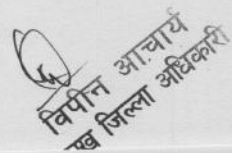 विपीन आचार्य
जिल्ला अधिकारी